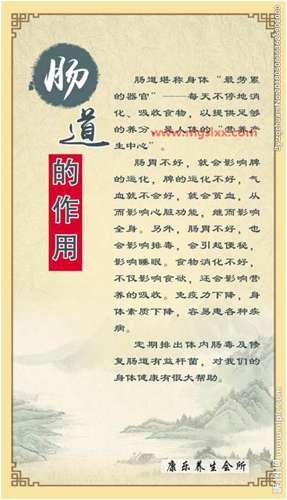 肠道
的作用
肠道堪称身体“最劳累
的器官”——每天不停地消
化、吸收食物，以提供足够
的养分，是人体的“营养产
生中心”。
www.mgslxx.com
肠胃不好，就会影响脾
的运化，脾的运化不好，气
血就不会好，就会贫血，从
而影响心脏功能，继而影响
全身。另外，肠胃不好，也
会影响排毒，会引起便秘，
影响睡眠。食物消化不好，
不仅影响食欲，还会影响营
养的吸收。免疫力下降，身
体素质下降，容易患各种疾
病。
定期排出体内肠毒及修
复肠道有益杆菌，对我们的
身体健康有很大帮助。
康乐养生会所